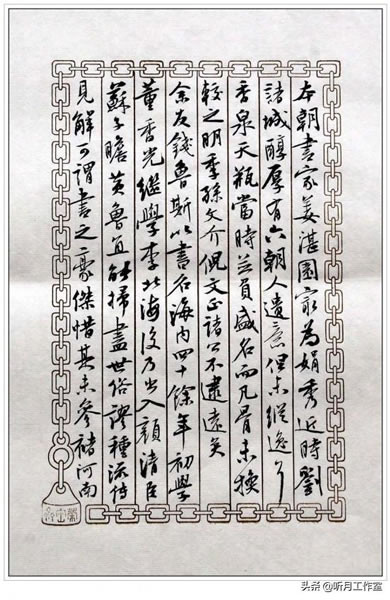 本朝書家姜湛園㝡為娟秀近時劉
諸城醇厚有六朝人遺意但未縱逸耳
香泉天瓶當時並負盛名而凡骨未換
較之明季孫文介倪文正諸公不逮遠矣
余友錢魯斯以書名海內四十餘年初學
董香光繼學李北海後乃出入顏清臣
蘇子瞻黃魯直能掃盡世俗謬種流傳
見解可謂書之豪傑惜其未參褚河南
头条 @听月工作室